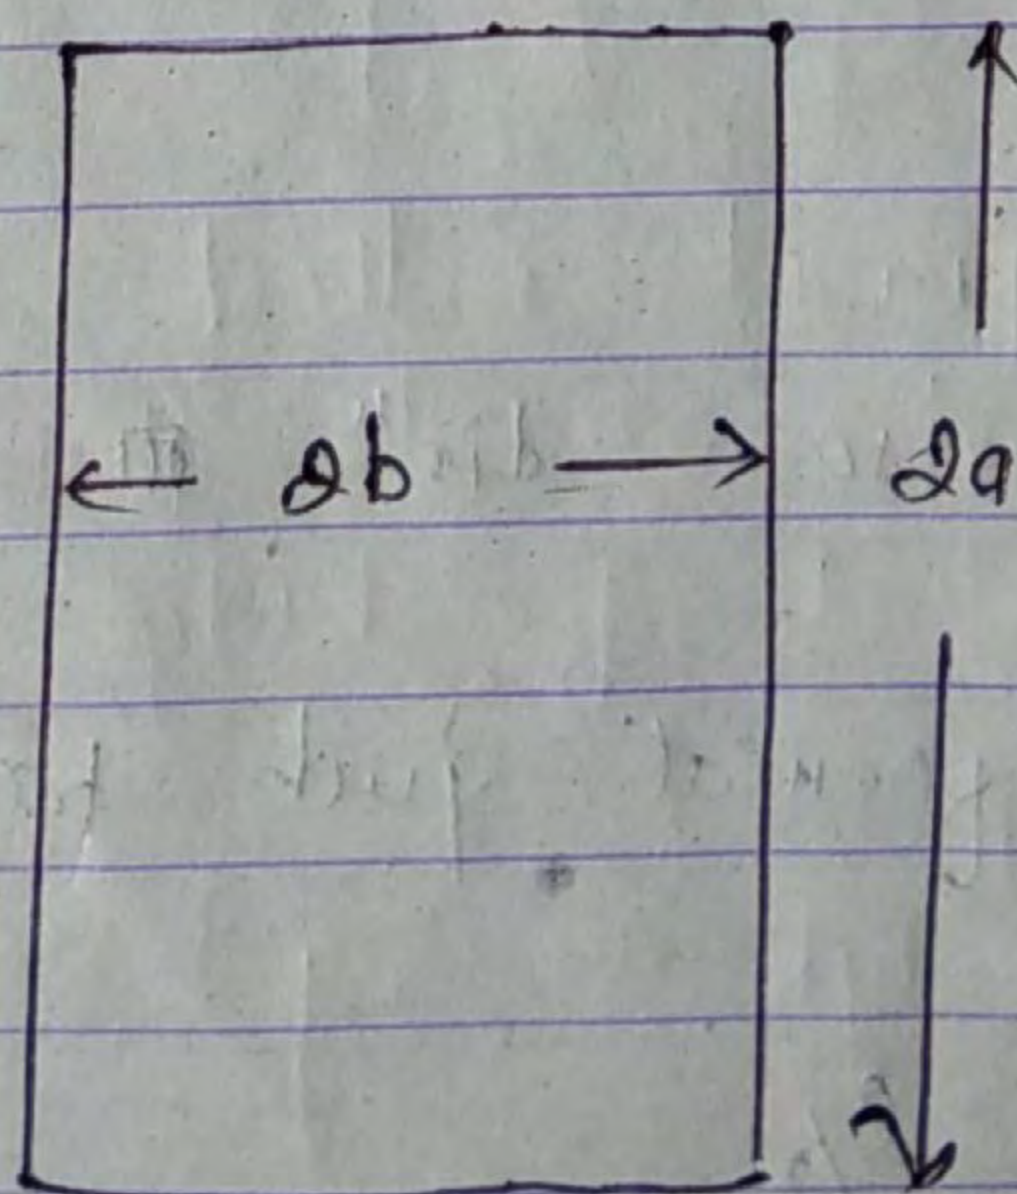 2b 2a